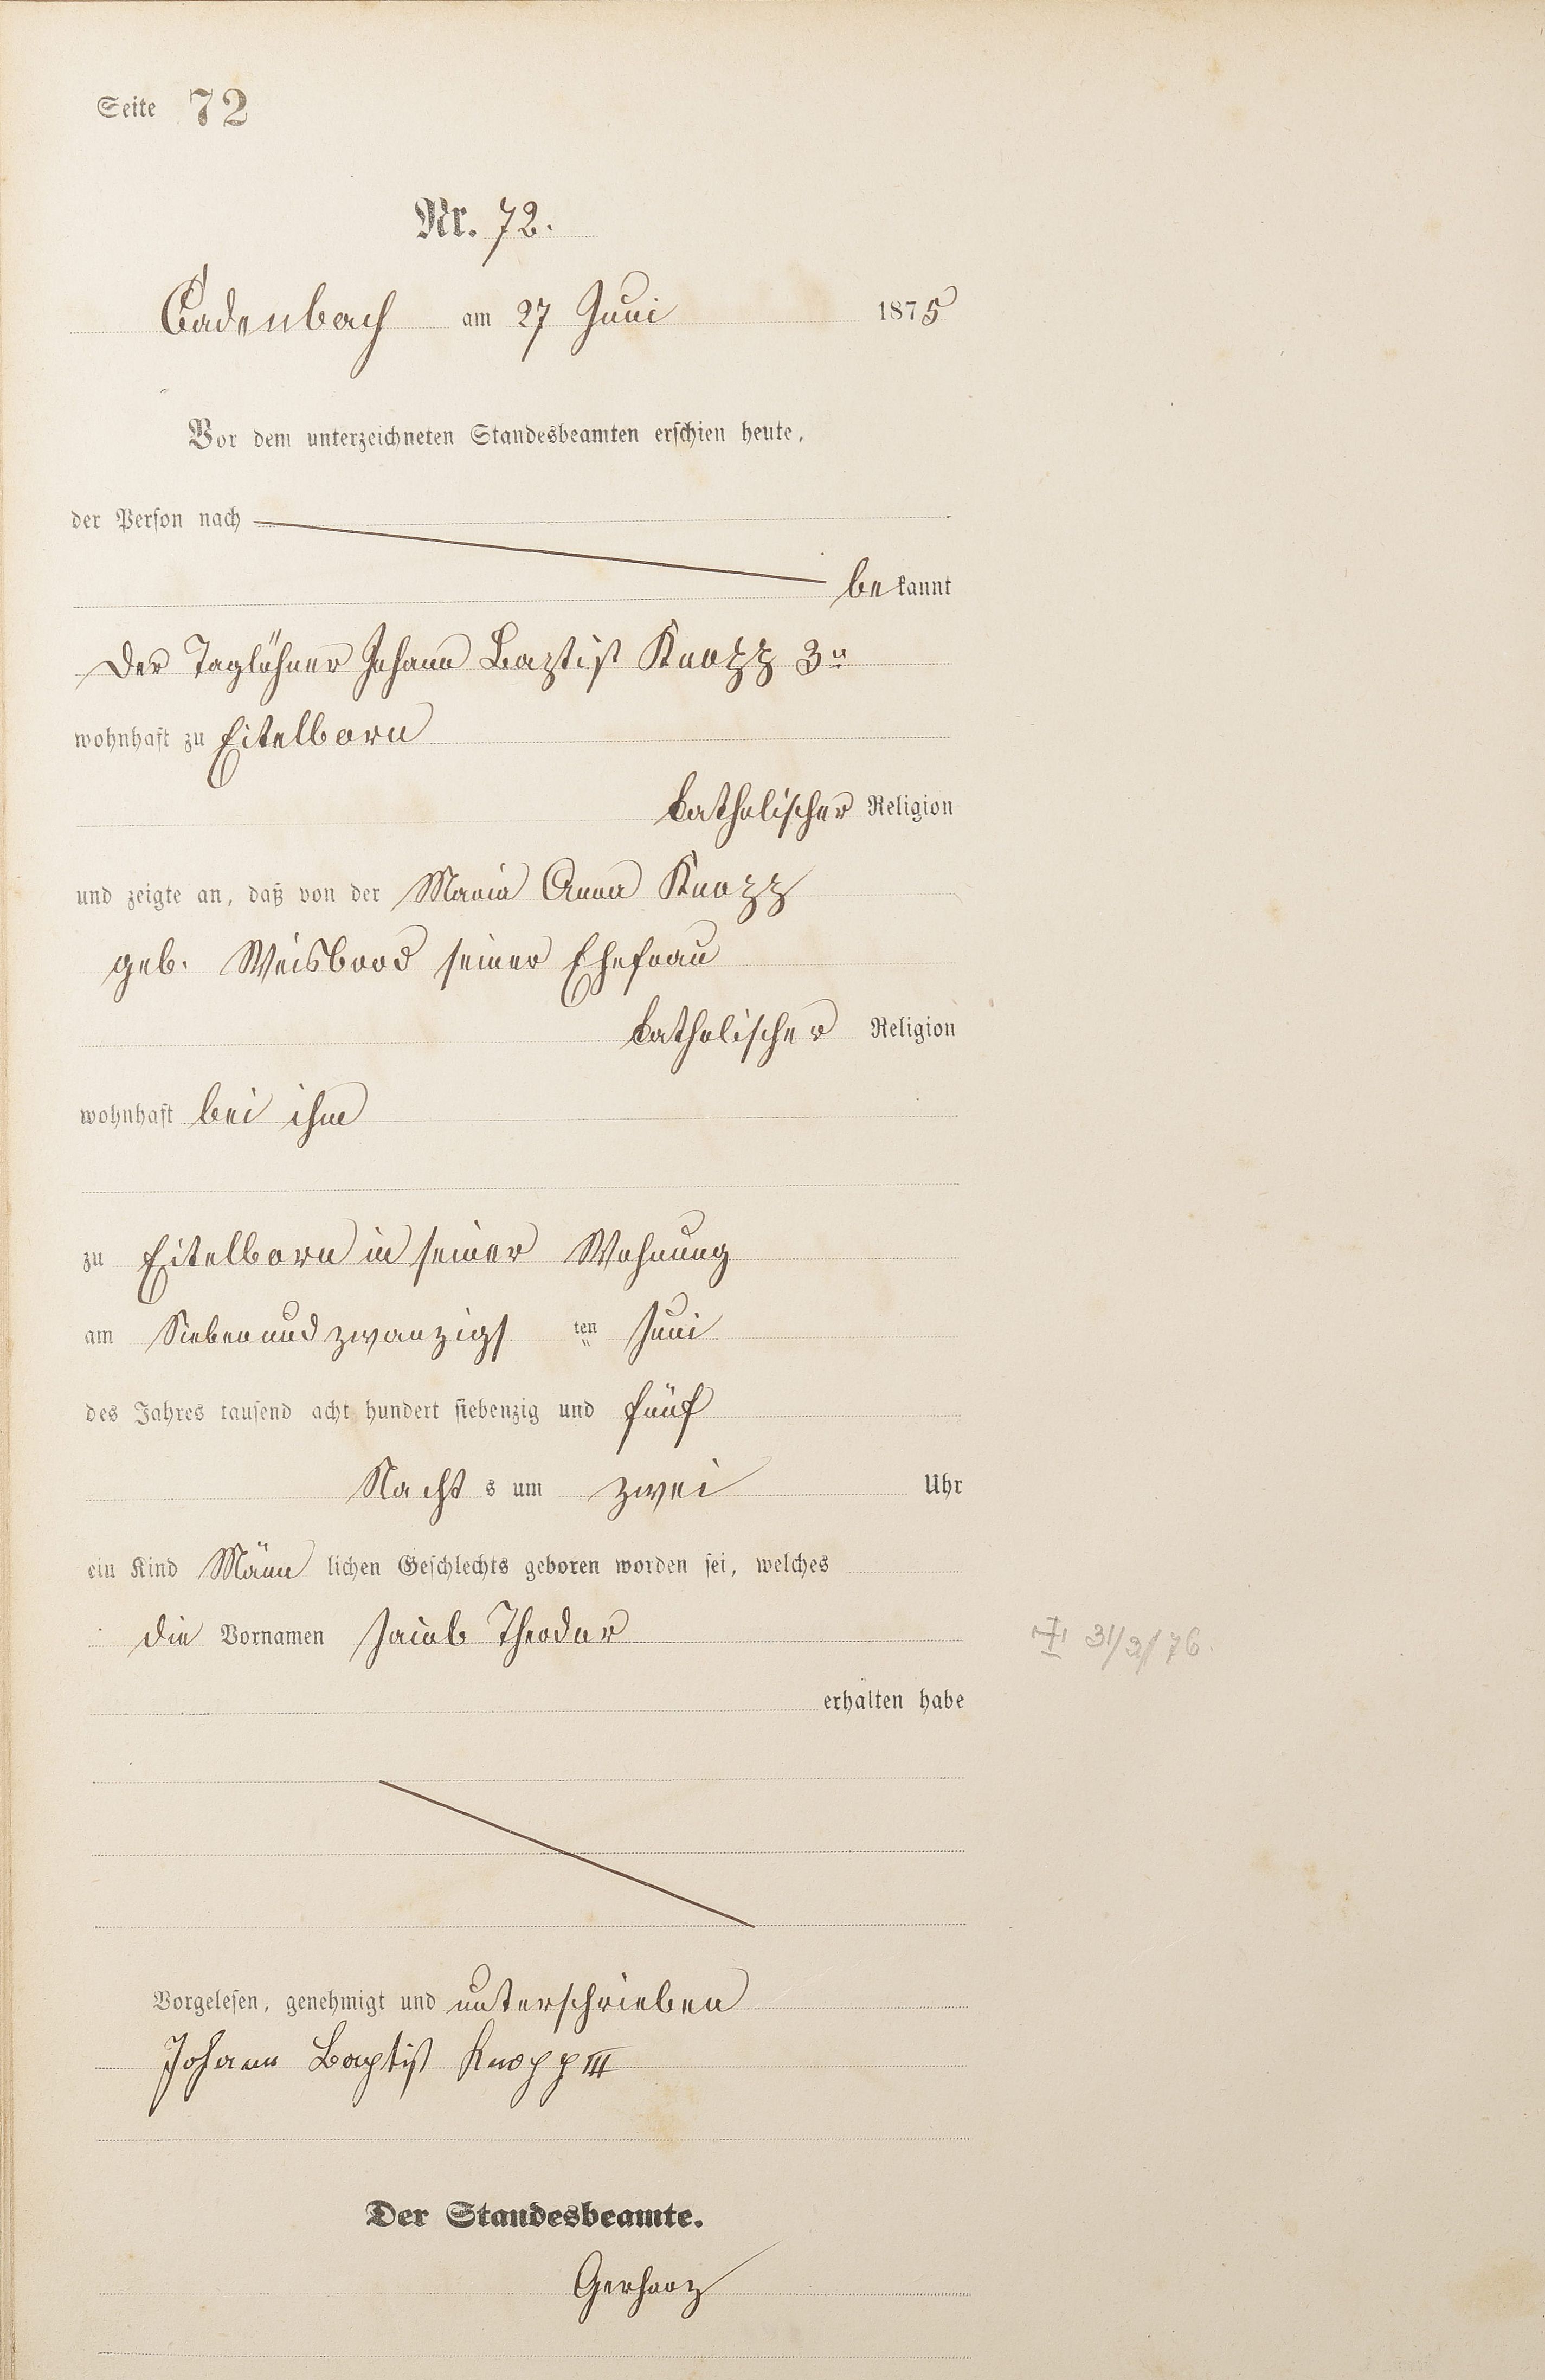 Seite 72
Nr. 72.
Cadenbach am 27 Juni 1875
Vor dem unterzeichneten Standesbeamten erschien heute,
der Person nach
bekannt
der Taglöhner Johann Baptist Knopp 3r
wohnhaft zu Eitelborn
katholischer Religion
und zeigte an, daß von der Maria Anna Knopp
geb. Weisbrod seiner Ehefrau
katholischer Religion
wohnhaft bei ihm
zu Eitelborn in seiner Wohnung
am Siebenundzwanzigs ten Juni
des Jahres tausend acht hundert siebenzig und fünf
Nachts um zwei Uhr
ein Kind Männlichen Geschlechts geboren worden sei, welches
die Vornamen Jacob Theodor
31/3/76.
erhalten habe
Vorgelesen, genehmigt und unterschrieben
Johann Baptist Knopp III
Der Standesbeamte.
Gerharz